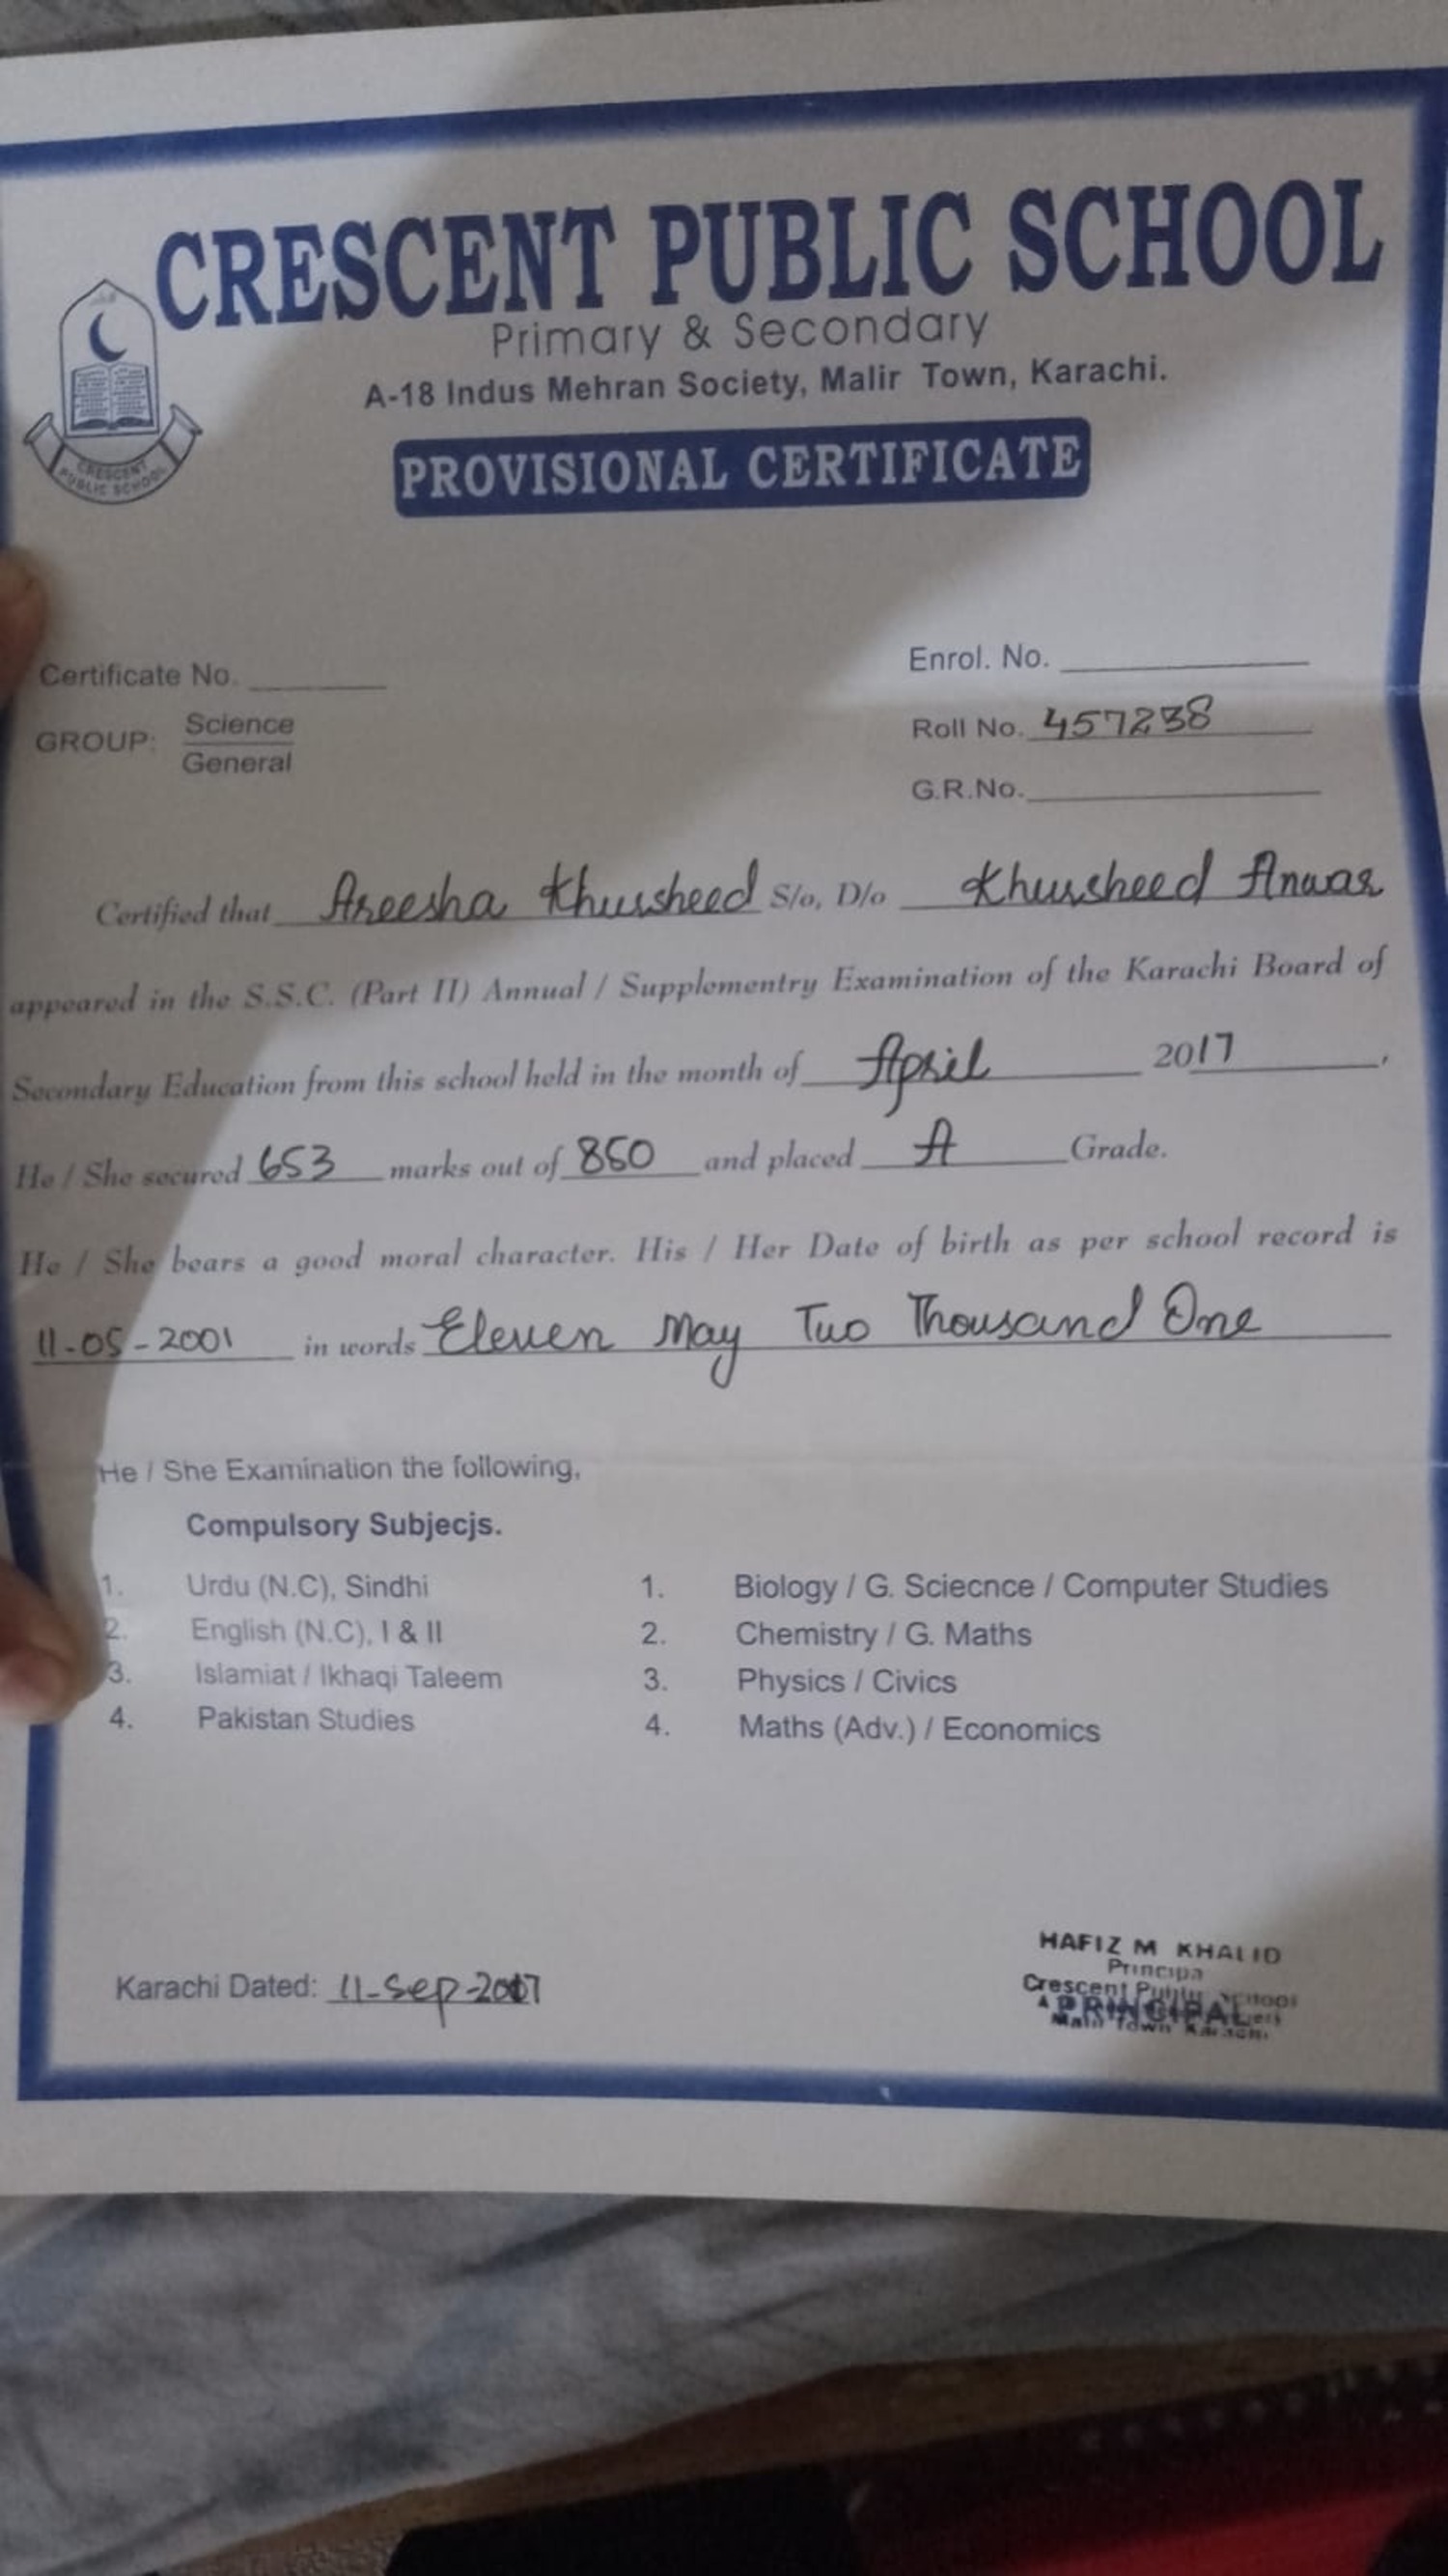 CRESCENT PUBLIC SCHOOL
Primary & Secondary
A-18 Indus Mehran Society, Malir Town, Karachi.
CRESCENT
PUBLIC SCHOOL
PROVISIONAL CERTIFICATE
Certificate No.
Enrol. No.
GROUP: Science
General
Roll No. 457238
G.R.No.
Certified that Areesha Khursheed S/o, D/o Khursheed Anwar
appeared in the S.S.C. (Part II) Annual / Supplementry Examination of the Karachi Board of
Secondary Education from this school held in the month of April 2017,
He / She secured 653 marks out of 850 and placed A Grade.
He / She bears a good moral character. His / Her Date of birth as per school record is
11-05-2001 in words Eleven May Two Thousand One
He / She Examination the following,
Compulsory Subjecjs.
1. Urdu (N.C), Sindhi 1. Biology / G. Sciecnce / Computer Studies
2. English (N.C), I & II 2. Chemistry / G. Maths
3. Islamiat / Ikhaqi Taleem 3. Physics / Civics
4. Pakistan Studies 4. Maths (Adv.) / Economics
Karachi Dated: 11-Sep-2017
HAFIZ M KHALID
Principa
Crescent Public School
PRINCIPAL
Malir Town Karachi